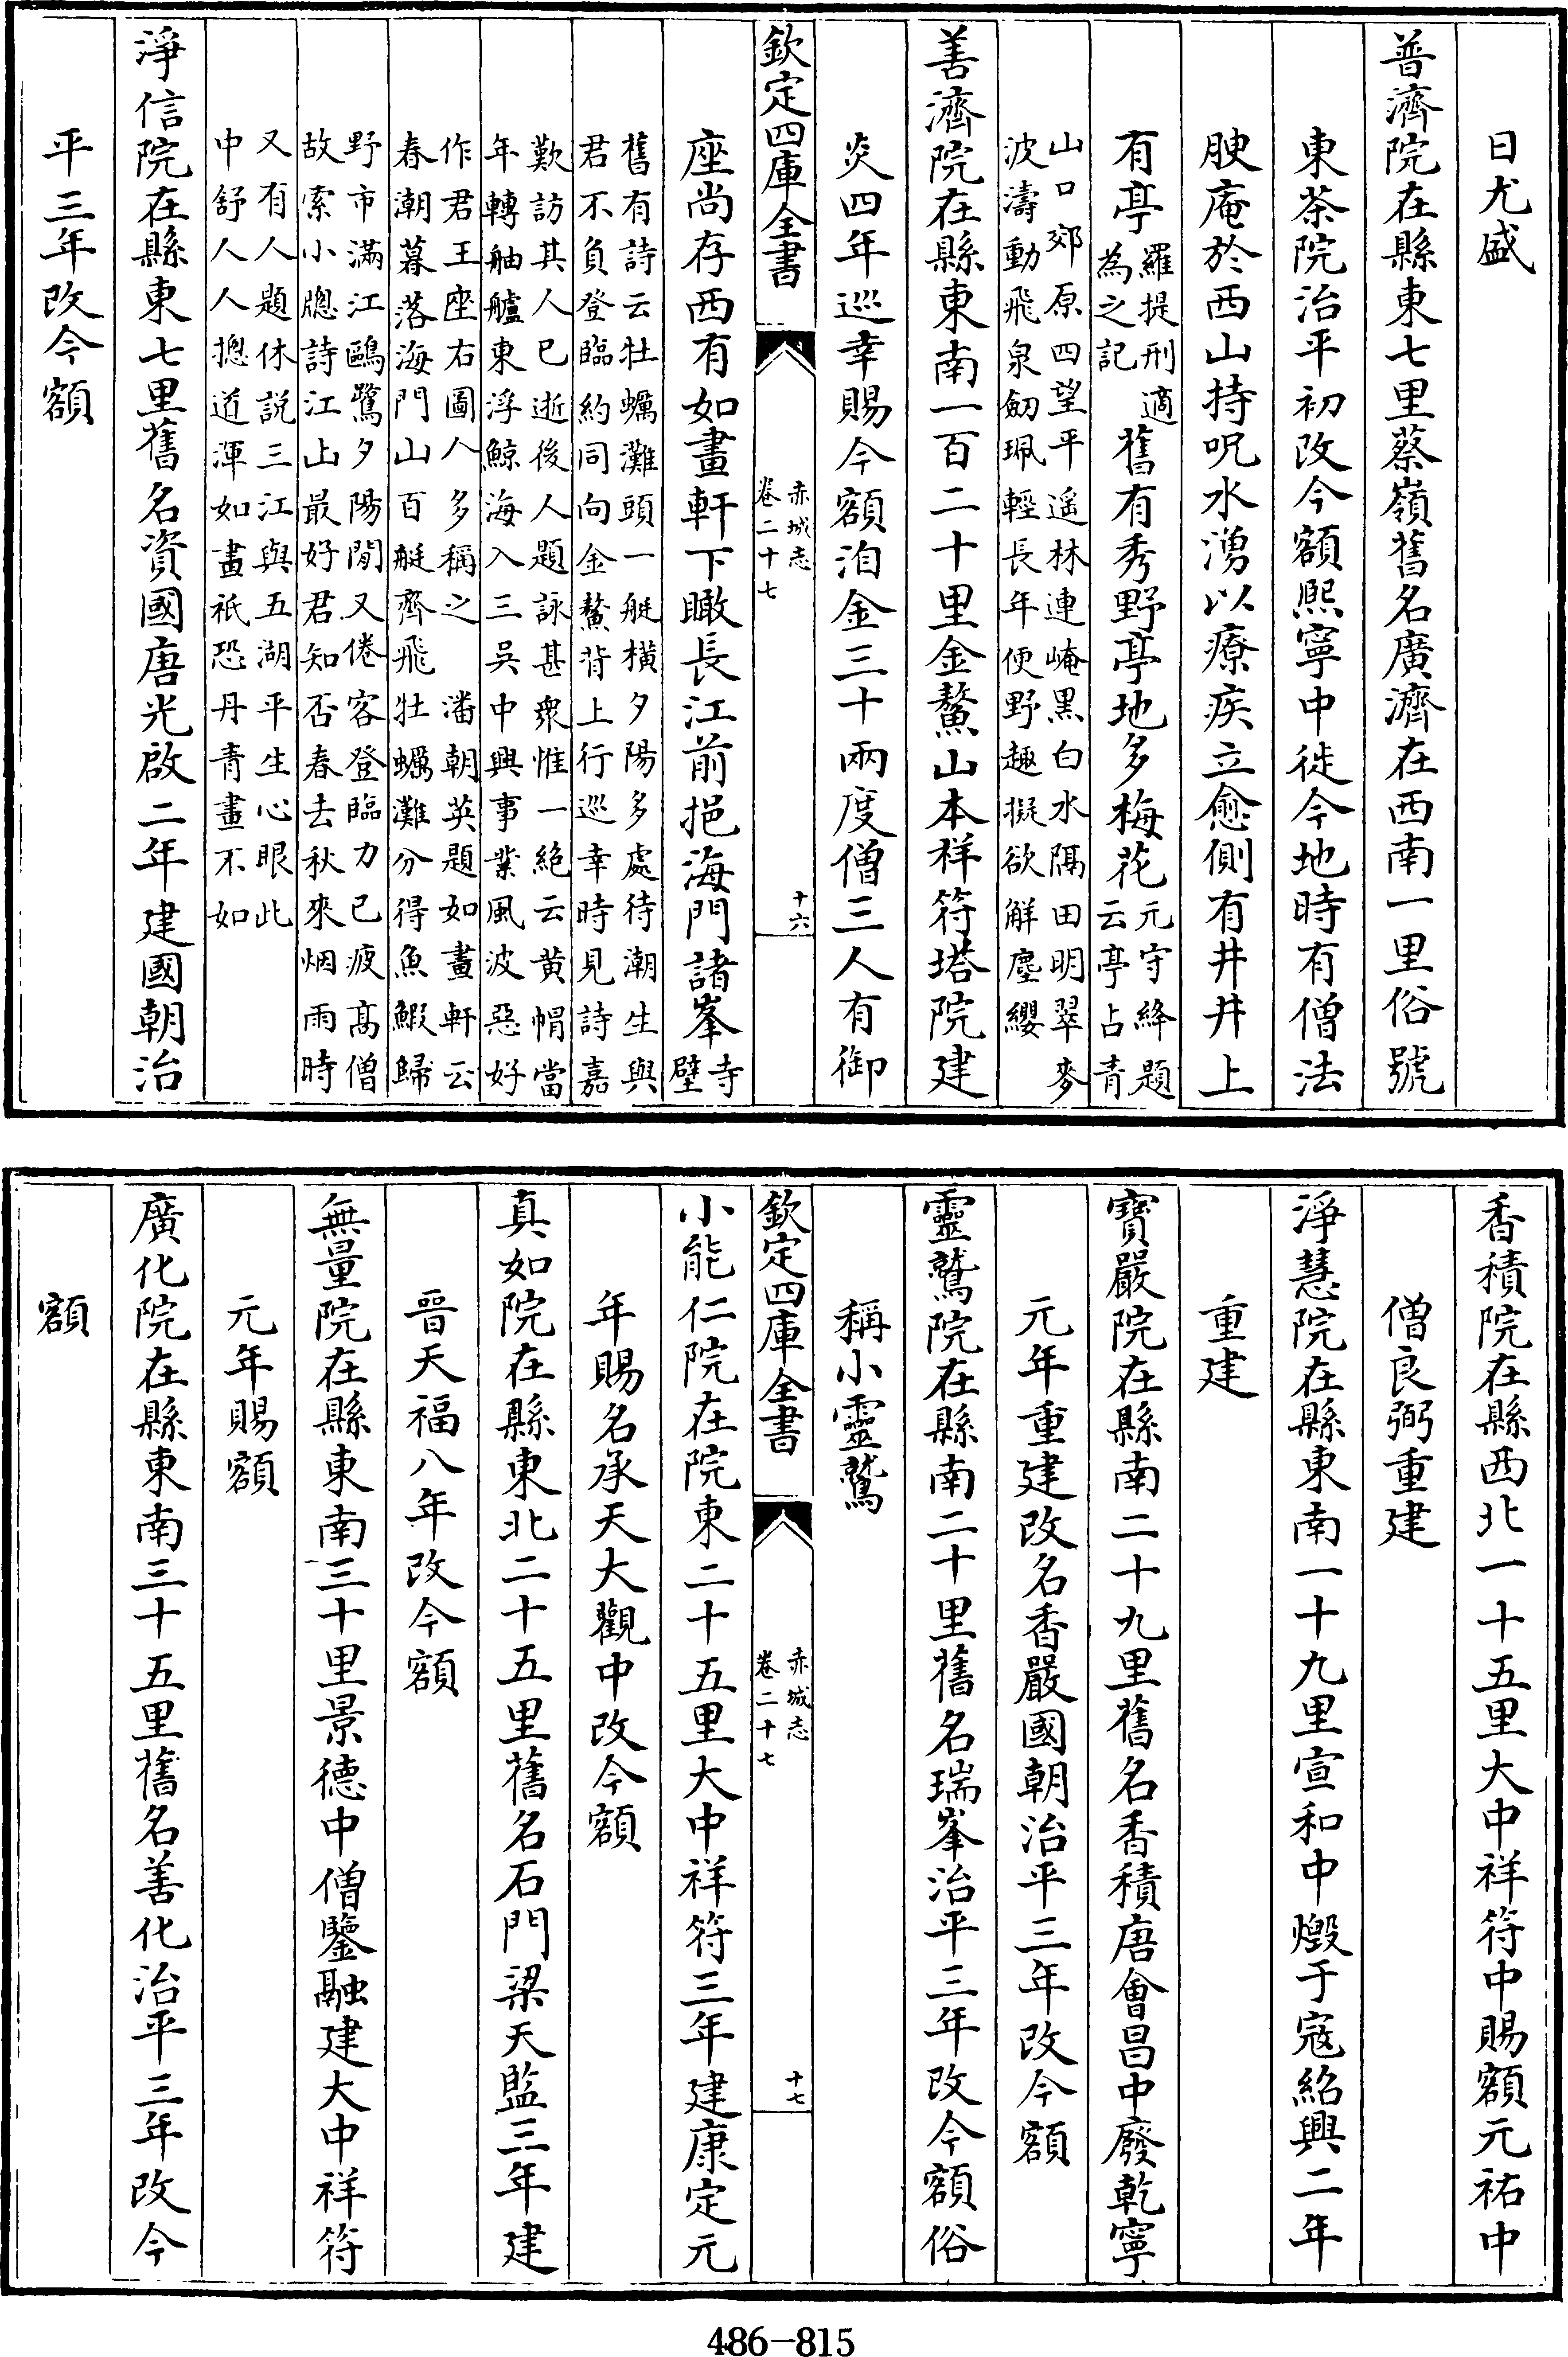 日尤盛
普濟院在縣東七里蔡嶺舊名廣濟在西南一里俗號
東茶院治平初改今額熙寧中徙今地時有僧法
腴庵於西山持呪水湧以療疾立愈側有井井上
有亭羅提刑適為之記舊有秀野亭地多梅花元守絳題云亭占青
山口郊原四望平遥林連崦黒白水隔田明翠麥
波濤動飛泉劒珮輕長年便野趣擬欲解塵纓
善濟院在縣東南一百二十里金鰲山本祥符塔院建
炎四年巡幸賜今額洎金三十兩度僧三人有御
欽定四庫全書
赤城志
卷二十七
十六
座尚存西有如畫軒下瞰長江前挹海門諸峯寺壁
舊有詩云牡蠣灘頭一艇橫夕陽多處待潮生與
君不負登臨約同向金鰲背上行巡幸時見詩嘉
歎訪其人已逝後人題詠甚衆惟一絶云黄帽當
年轉舳艫東浮鯨海入三吳中興事業風波惡好
作君王座右圖人多稱之 潘朝英題如畫軒云
春潮暮落海門山百艇齊飛牡蠣灘分得魚鰕歸
野市滿江鷗鷺夕陽閒又倦客登臨力已疲高僧
故索小牕詩江上最好君知否春去秋來烟雨時
又有人題休説三江與五湖平生心眼此
中舒人人摠道渾如畫祇恐丹青畫不如
淨信院在縣東七里舊名資國唐光啟二年建國朝治
平三年改今額
香積院在縣西北一十五里大中祥符中賜額元祐中
僧良弼重建
淨慧院在縣東南一十九里宣和中燬于寇紹興二年
重建
寶嚴院在縣南二十九里舊名香積唐會昌中廢乾寧
元年重建改名香嚴國朝治平三年改今額
靈鷲院在縣南二十里舊名瑞峯治平三年改今額俗
稱小靈鷲
欽定四庫全書
赤城志
卷二十七
十七
小能仁院在院東二十五里大中祥符三年建康定元
年賜名承天大觀中改今額
真如院在縣東北二十五里舊名石門梁天監三年建
晉天福八年改今額
無量院在縣東南三十里景德中僧鑒融建大中祥符
元年賜額
廣化院在縣東南三十五里舊名善化治平三年改今
額
486-815